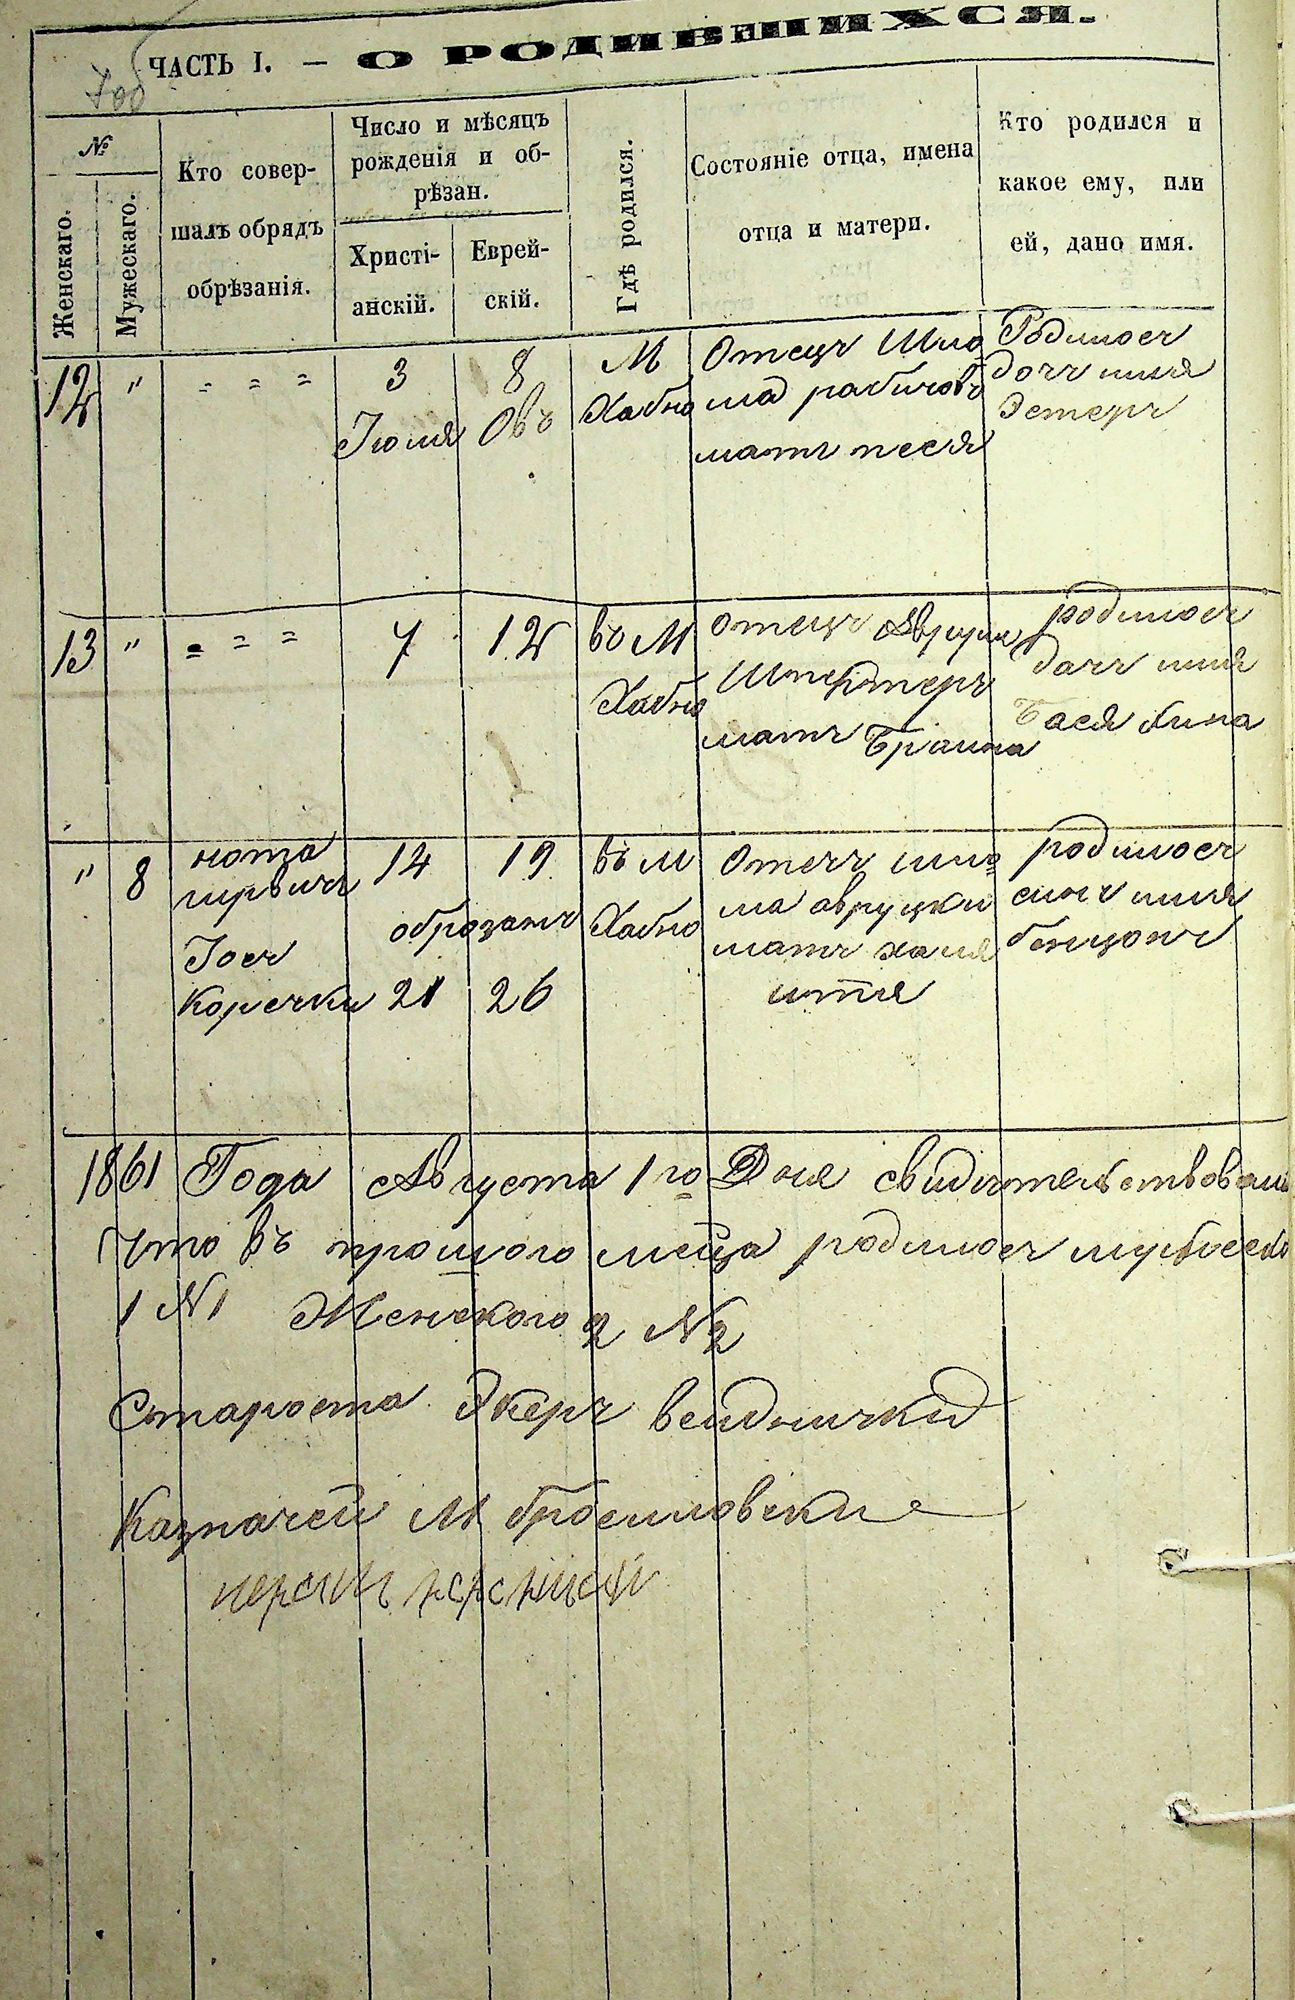 ЧАСТЬ I. — О РОДИВШИХСЯ.
№
Женскаго.
Мужескаго.
Кто совер-
шалъ обрядъ
обрѣзанія.
Число и мѣсяцъ
рожденія и об-
рѣзан.
Христі-
анскій.
Еврей-
скій.
Гдѣ родился.
Состояніе отца, имена
отца и матери.
Кто родился и
какое ему, или
ей, дано имя.
12 " = = = 3
Іюля
8
Овъ
М
Хабно
Отецъ Шло
ма рабичовъ
мать песя
Родилось
дочь имя
Эстеръ
13 " = = = 7 12
во М
Хабно
отецъ Аврум
мать Браина
родилось
дочь имя
Бася бина
" 8
нота
гурвичъ
Іось
Коречки
14 19
обрѣзанъ
21 26
въ М
Хабно
Отечъ шло
ма овруцки
мать хая
итя
родилось
синъ имя
бенционъ
1861 Года Августа 1го Дня свидѣтельствовали
что въ прошого мѣца родилось мужеско
1 №1 Женского 2 №2
Староста
Казначей М бросиловски